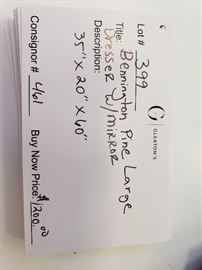 Lot # 399
G
GLEATON'S
Title: Bennington Pine Large
Dresser w/mirror
Description:
35" x 20" x 60"
Consignor # 461
Buy Now Price: $1200.00